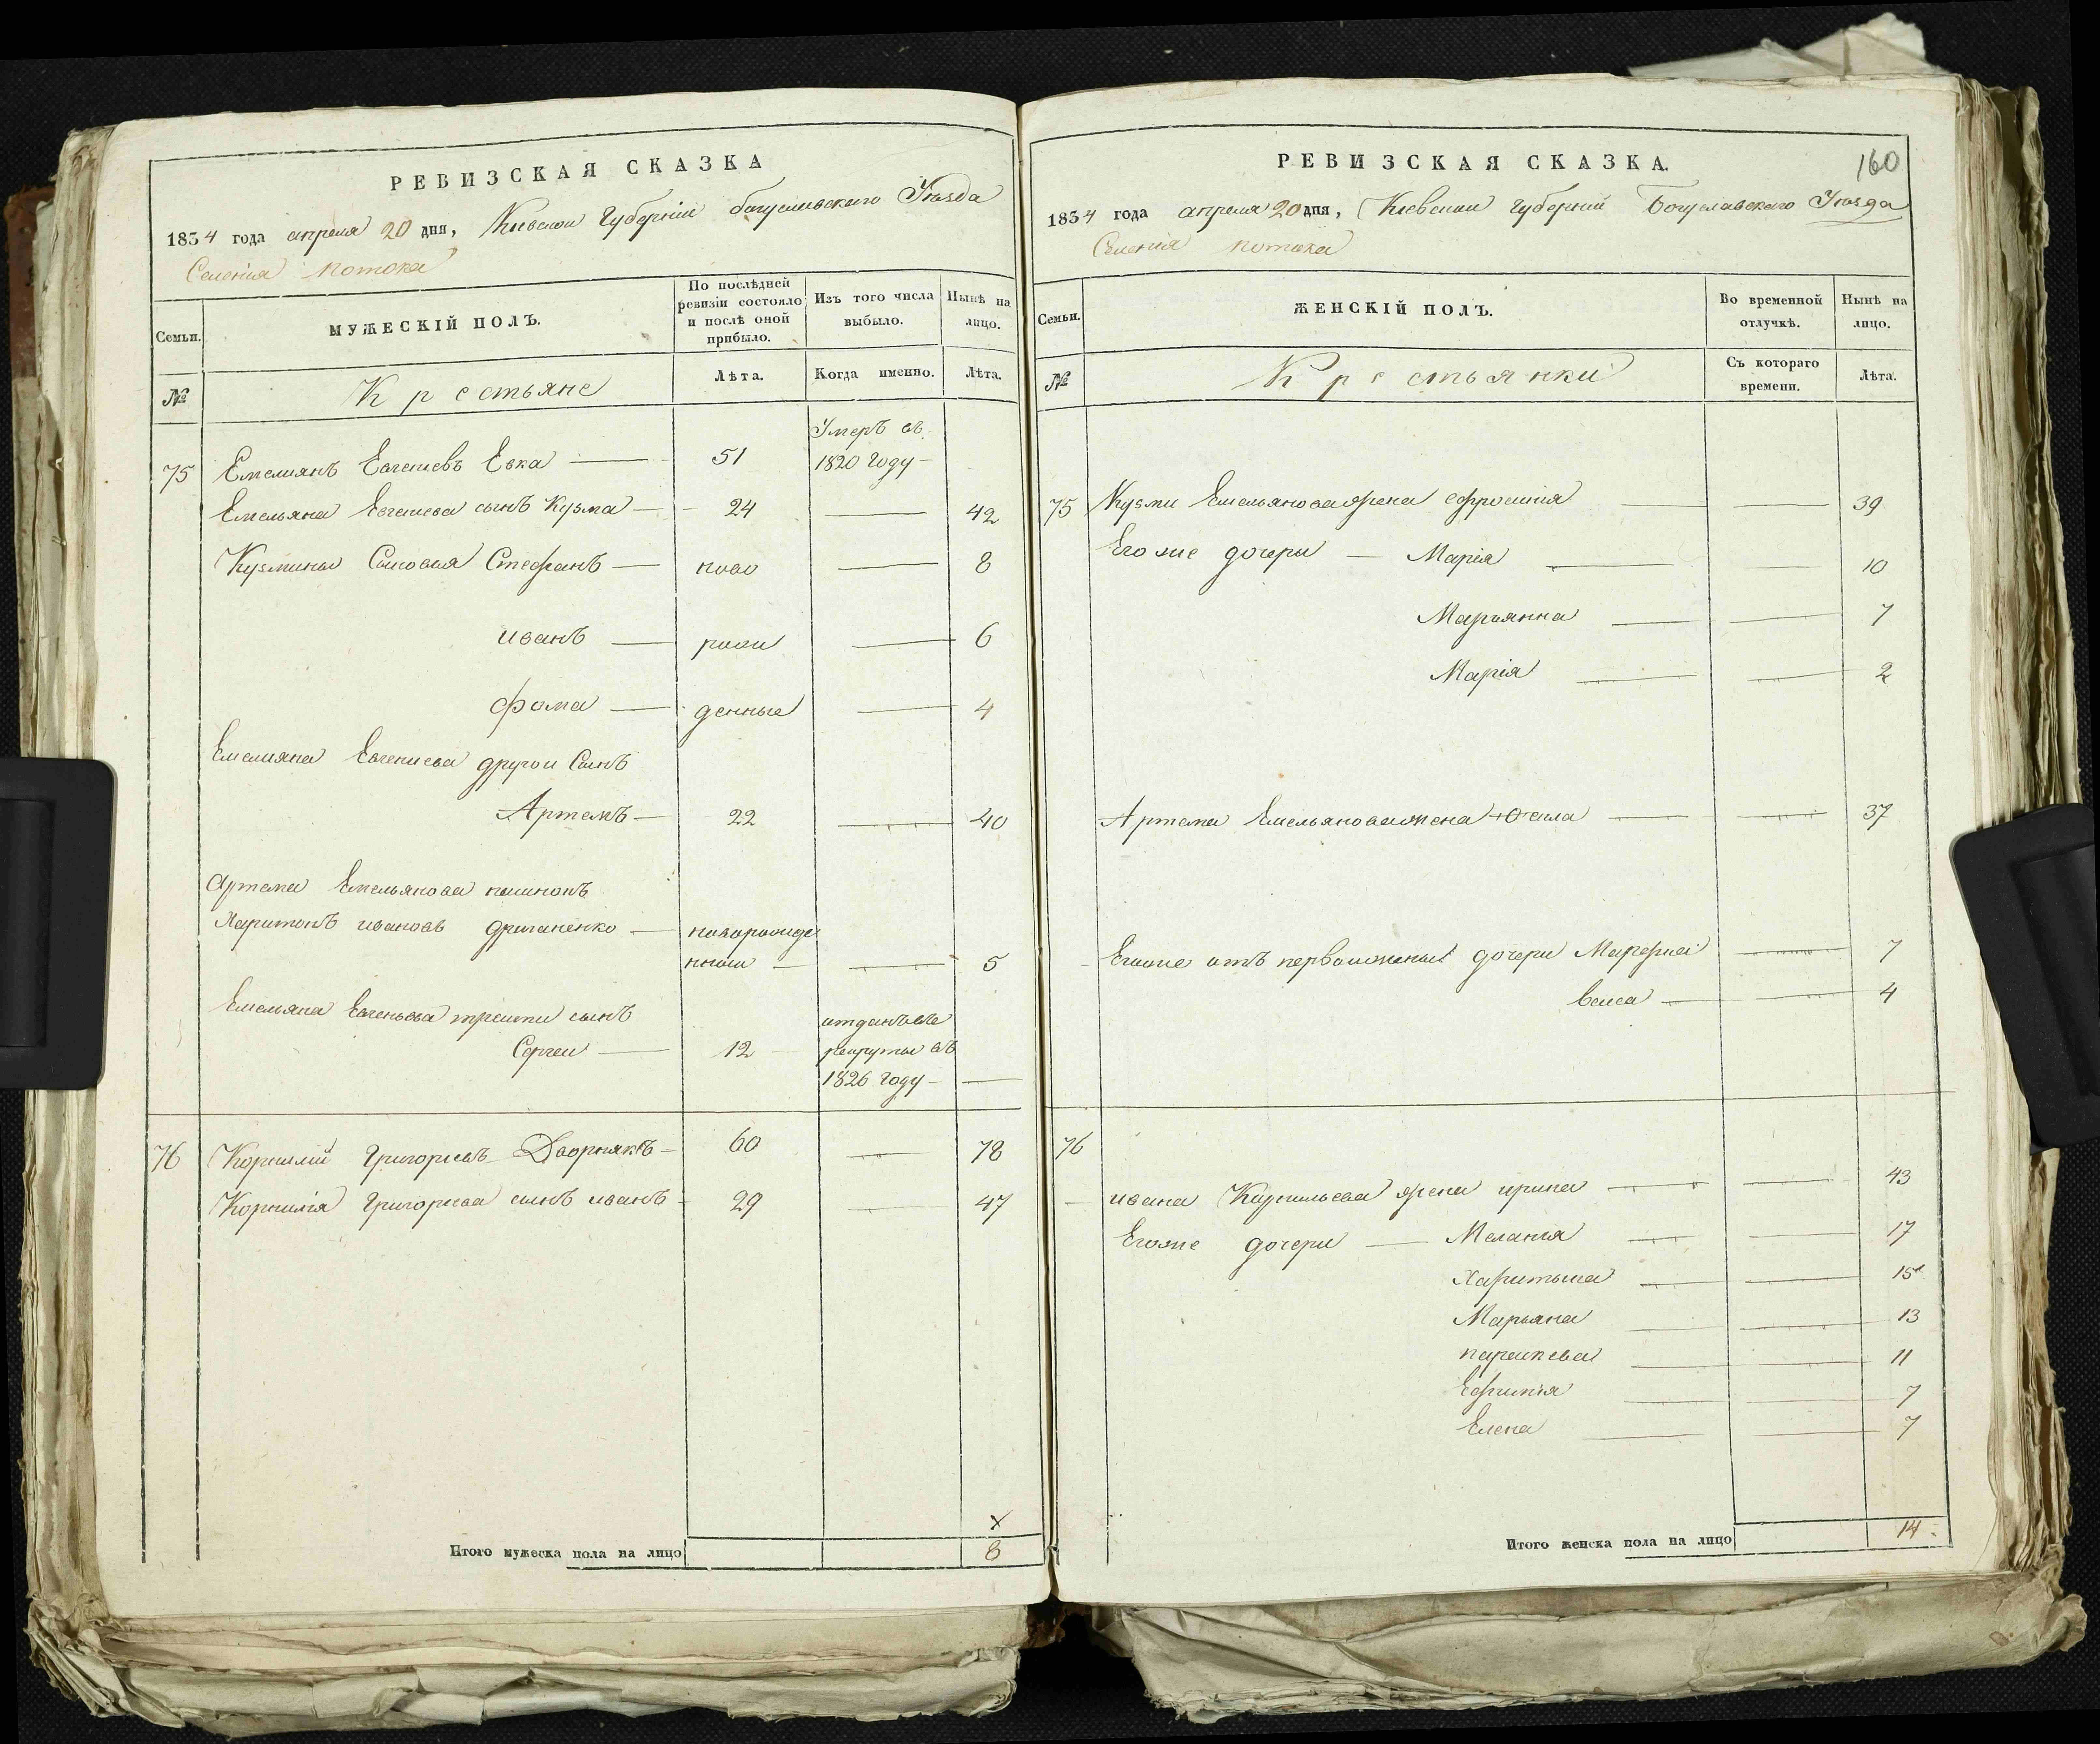 РЕВИЗСКАЯ СКАЗКА
1834 года апреля 20 дня, Киевской Губерніи богуславского Уѣзда
Селенія потока
Семьи.
МУЖЕСКІЙ ПОЛЪ.
По послѣдней ревизіи состояло и послѣ оной прибыло.
Изъ того числа выбыло.
Нынѣ на лицо.
№
Крестьяне
Лѣта.
Когда именно.
Лѣта.
Умеръ въ
75 Емелиянъ Евгениевъ Евка — 51 1820 году —
Емельяна Евгениева сынъ Кузма — 24 — 42
Кузмины Сыновья Стефанъ — ново — 8
иванъ — рож — 6
фома — денные — 4
Емелияна Евгениева другои Сынъ
Артемъ — 22 — 40
Артема Емельянова
Харитонъ ивановъ — новорожде
нныи — — 5
Емельяна Евгеньева третии сынъ отданъ въ
Сергеи — 12 рекруты въ
1826 году — —
76 Корнилий Григориевъ Дворнякъ — 60 — 78
Корнилія Григориева сынъ иванъ - 29 — 47
Итого мужеска пола на лицо 8
РЕВИЗСКАЯ СКАЗКА. 160
1834 года апреля 20 дня, Киевской губерніи Богуславского Уѣзда
Селенія потока
Семьи.
ЖЕНСКІЙ ПОЛЪ.
Во временной отлучкѣ.
Нынѣ на лицо.
№
Крестьянки
Съ котораго времени.
Лѣта.
75 Кузми Емельянова жена ефросинія — — 39
Егоже дочери — Марія — — 10
Марьянна — — 7
Марія — — 2
Артема Емельянова жена Ѳекла — — 37
Егоже отъ первои жены дочери Марфа — 7
васса — — 4
76
ивана Корнильева жена ирина — — 43
Егоже дочери — Меланія — — 17
Харитына — — 15
Марьяна — — 13
параскева — — 11
Ефимія — — 7
Елена — — 7
Итого женска пола на лицо 14